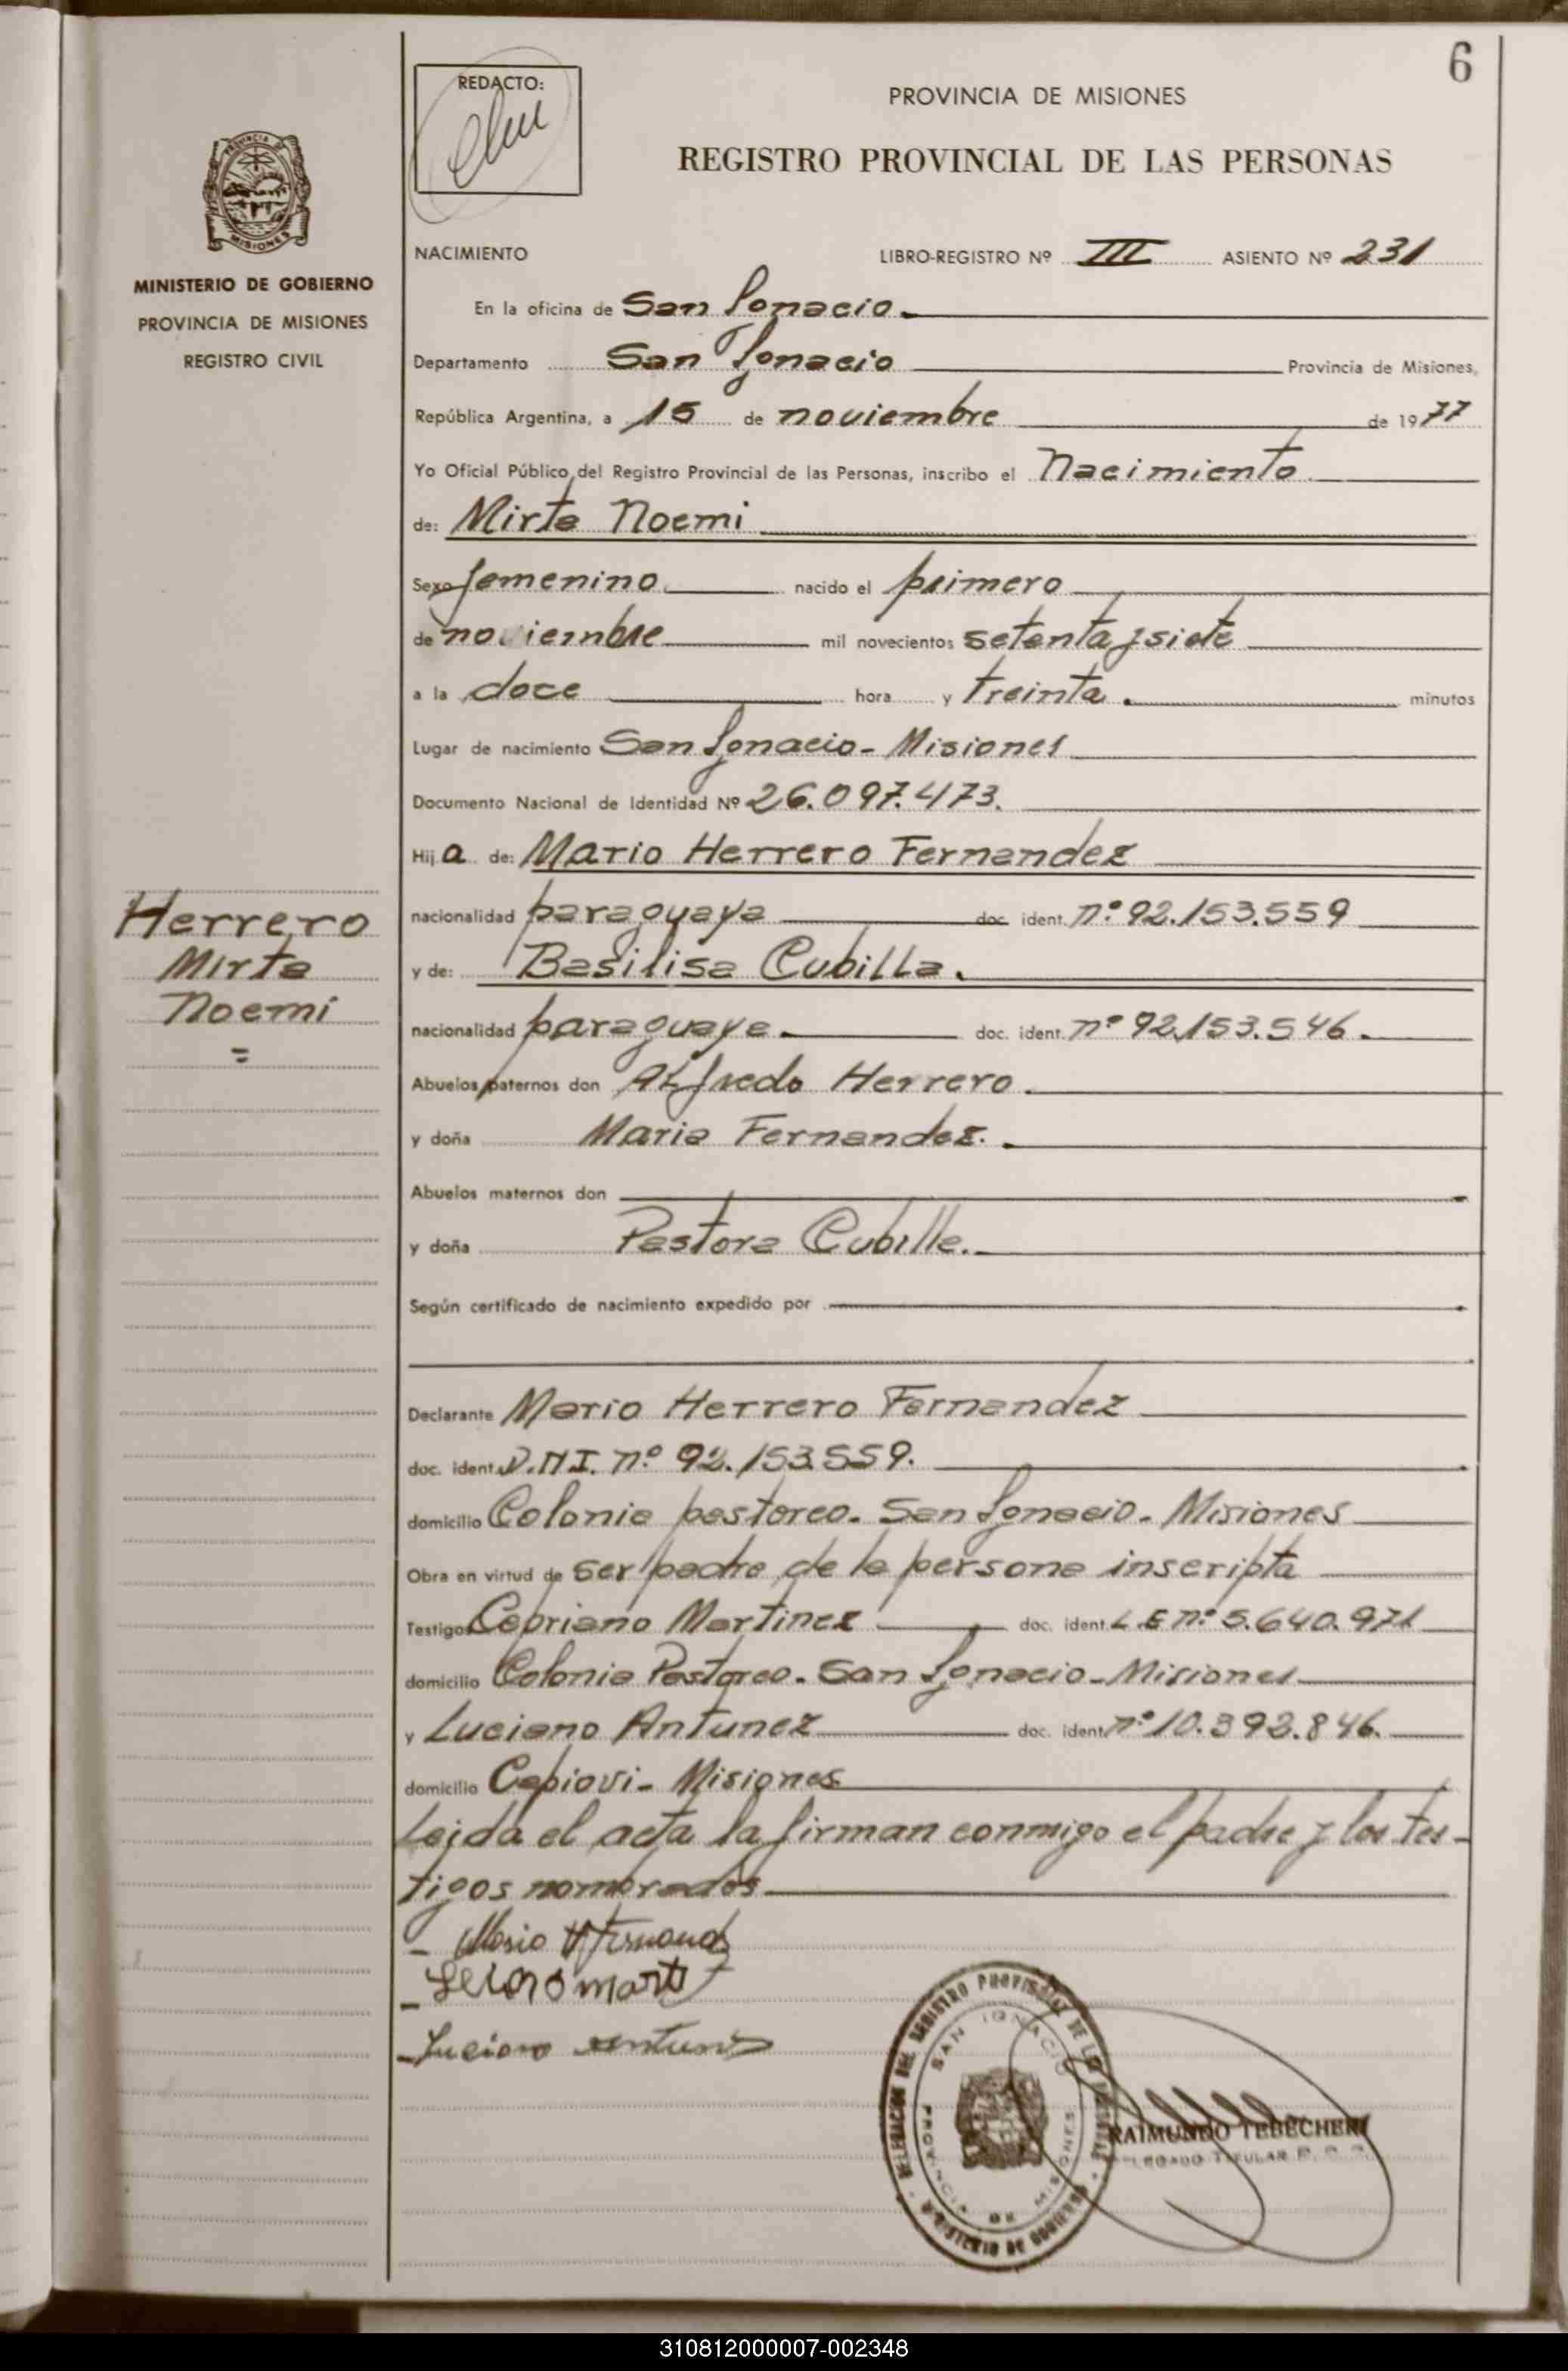 6
REDACTO:
PROVINCIA DE MISIONES
REGISTRO PROVINCIAL DE LAS PERSONAS
PROVINCIA DE
MISIONES
MINISTERIO DE GOBIERNO
PROVINCIA DE MISIONES
REGISTRO CIVIL
NACIMIENTO LIBRO-REGISTRO Nº III ASIENTO Nº 231
En la oficina de San Ignacio.
Departamento San Ignacio Provincia de Misiones,
República Argentina, a 15 de noviembre de 1977
Yo Oficial Público del Registro Provincial de las Personas, inscribo el Nacimiento
de: Mirta Noemi
Sexo femenino nacido el primero
de noviembre mil novecientos setenta y siete
a la doce hora y treinta. minutos
Lugar de nacimiento San Ignacio - Misiones
Documento Nacional de Identidad Nº 26.097.473.
Hija de: Mario Herrero Fernandez
Herrero
Mirta
Noemi
=
nacionalidad paraguaya doc. ident. nº 92.153.559
y de: Basilisa Cubilla.
nacionalidad paraguaya. doc. ident. nº 92.153.546.
Abuelos paternos don Alfredo Herrero.
y doña Maria Fernandez.
Abuelos maternos don
y doña Pastora Cubilla.
Según certificado de nacimiento expedido por
Declarante Mario Herrero Fernandez
doc. ident. D.N.I. nº 92.153.559.
domicilio Colonia pastoreo - San Ignacio - Misiones
Obra en virtud de ser padre de la persona inscripta
Testigos Cepriano Martinez doc. ident. L.E nº 5.640.971
domicilio Colonia Pastoreo - San Ignacio - Misiones
y Luciano Antunez doc. ident. nº 10.392.846.
domicilio Capiovi - Misiones
Leida el acta la firman conmigo el padre y los tes-
tigos nombrados
- Mario H Fernandz
- Luciano
DELEGACION DEL REGISTRO PROVINCIAL DE LAS PERSONAS
SAN IGNACIO
PROVINCIA DE MISIONES
MINISTERIO DE GOBIERNO
RAIMUNDO TEBECHERI
DELEGADO TITULAR
310812000007-002348